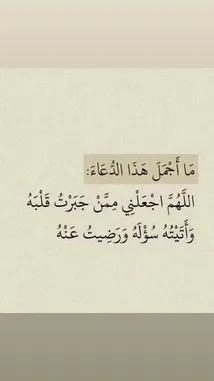 مَا أَجْمَلَ هَذَا الدُّعَاءَ:
اللَّهُمَّ اجْعَلْنِي مِمَّنْ جَبَرْتُ قَلْبَهُ
وَأَتَيْتُهُ سُؤْلَهُ وَرَضِيتُ عَنْهُ